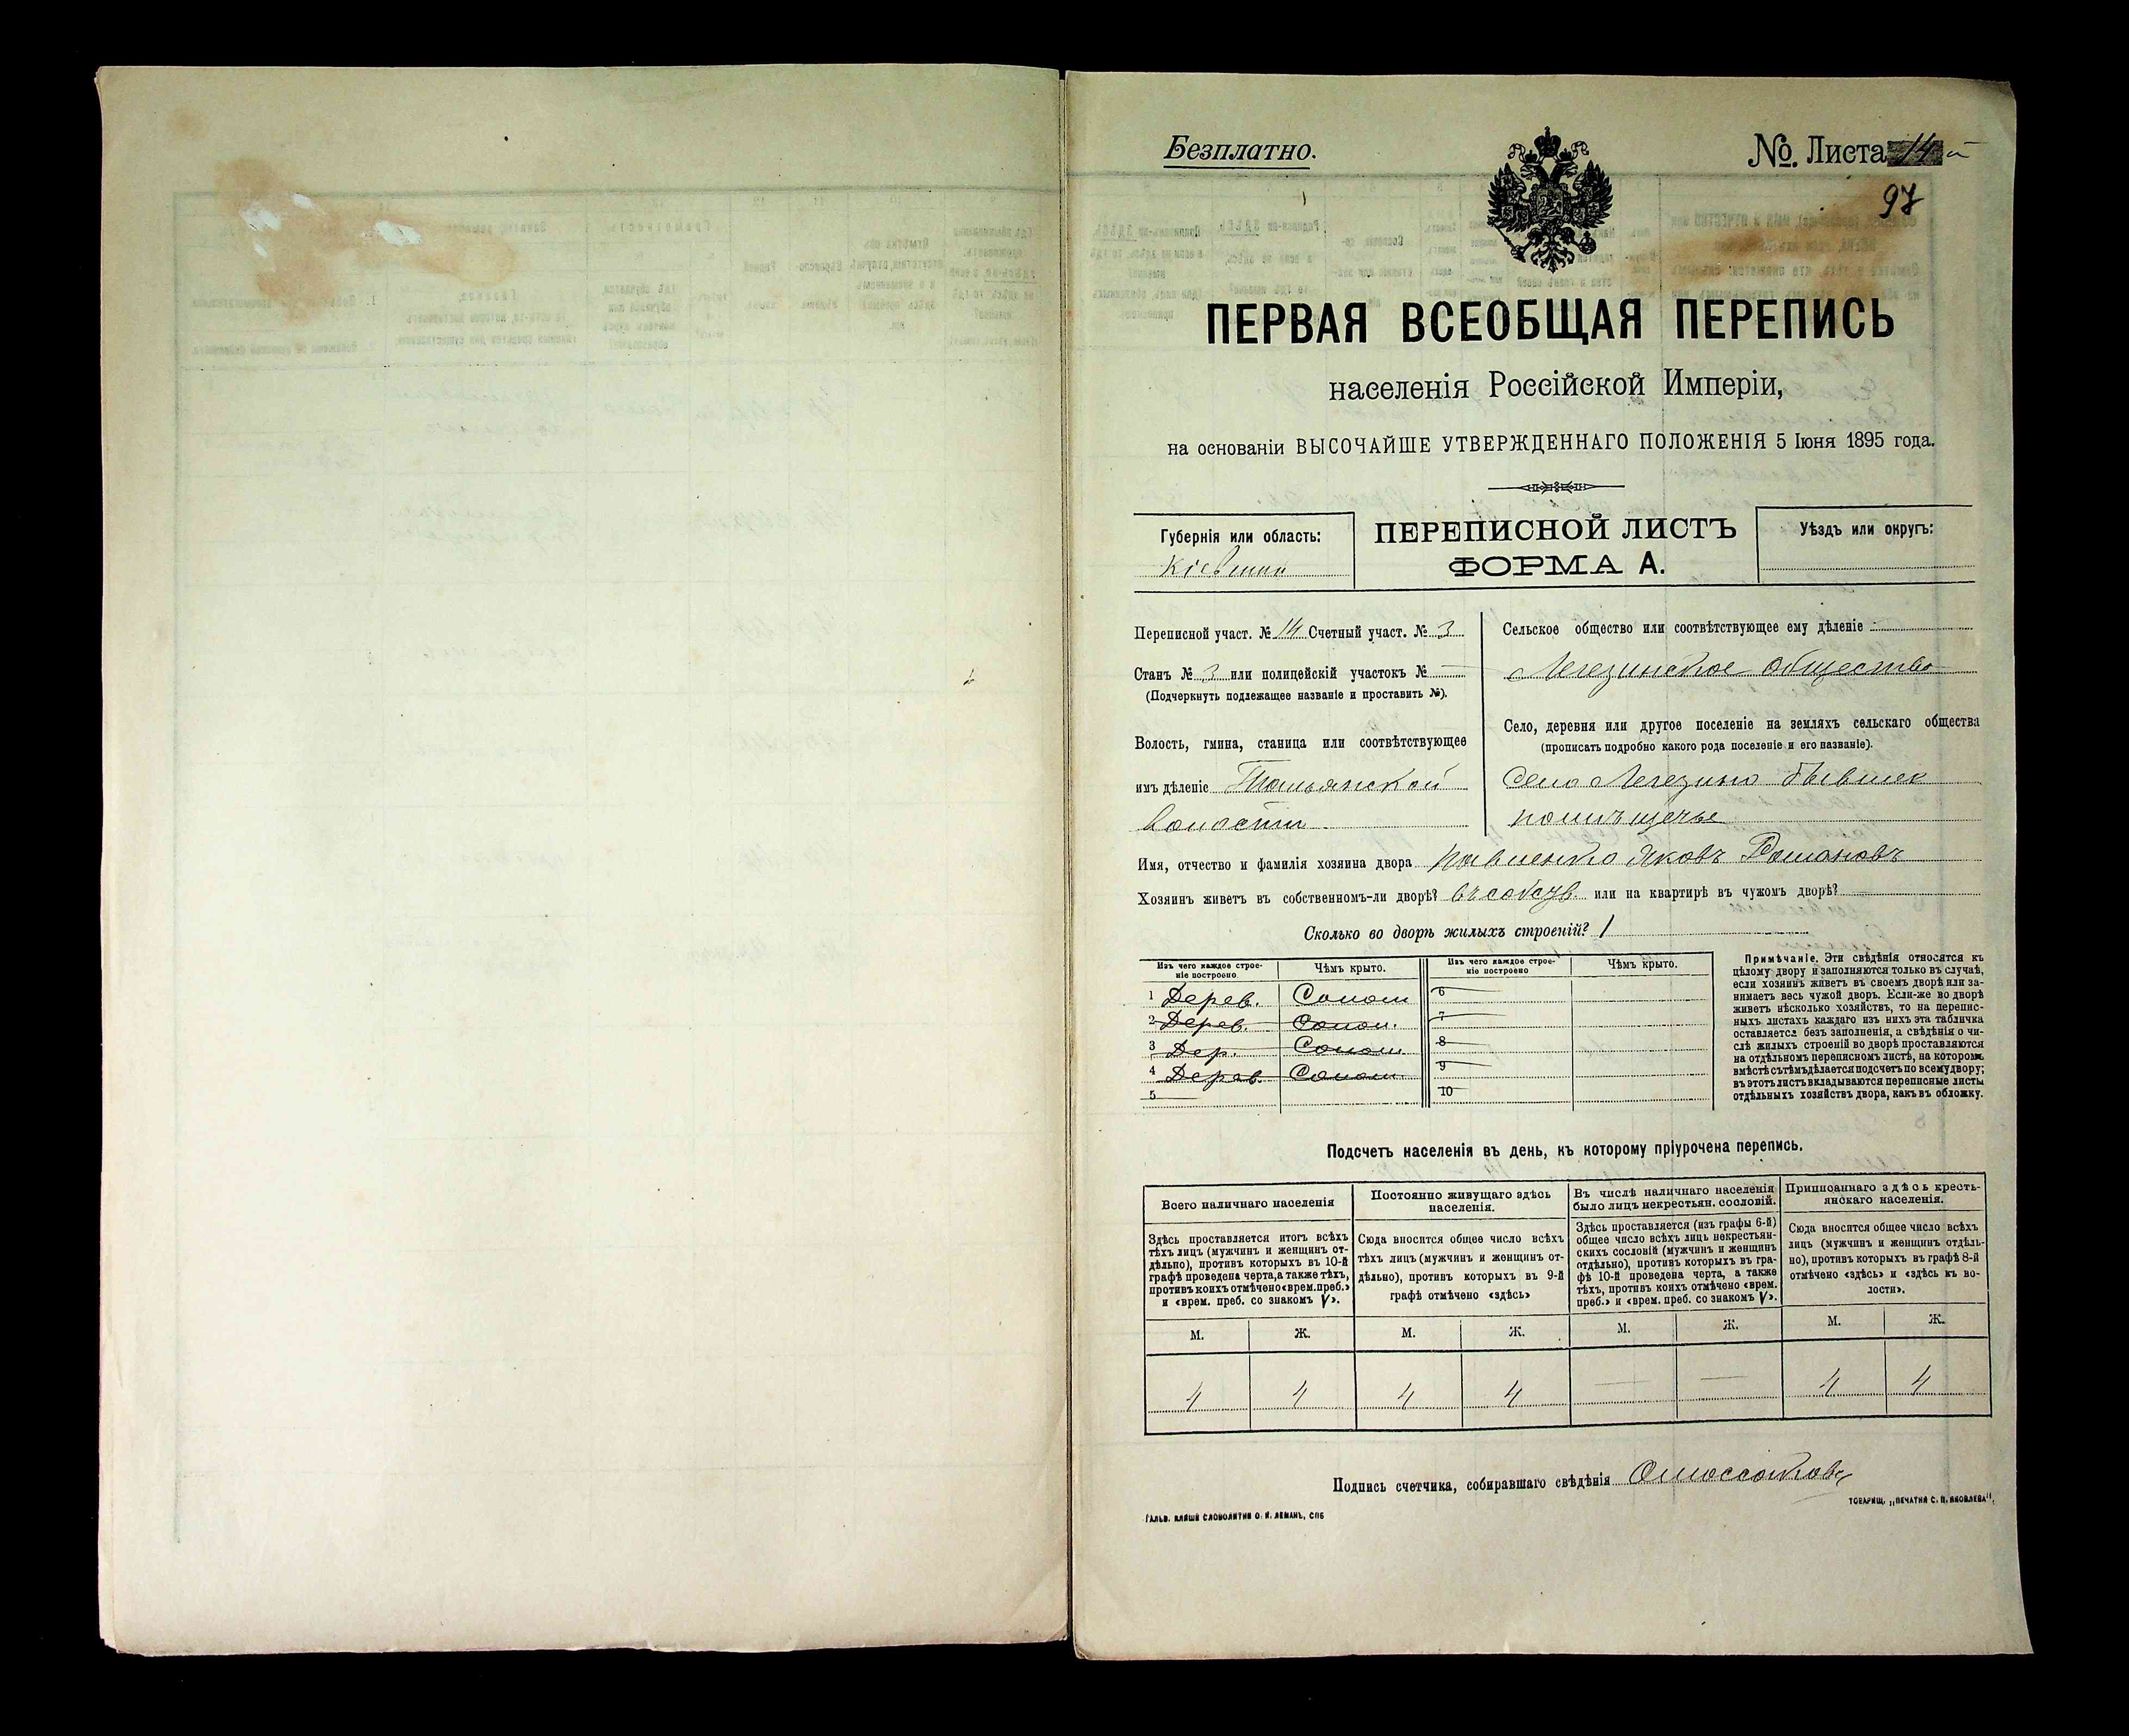 Безплатно.
№. Листа 14 а
97
ПЕРВАЯ ВСЕОБЩАЯ ПЕРЕПИСЬ
населенія Россійской Имперіи,
на основаніи ВЫСОЧАЙШЕ УТВЕРЖДЕННАГО ПОЛОЖЕНІЯ 5 Іюня 1895 года.
Губернія или область:
Кіевская
ПЕРЕПИСНОЙ ЛИСТЪ
ФОРМА А.
Уѣздъ или округъ:
Переписной участ. № 14 Счетный участ. № 3
Станъ № 3 или полицейскій участокъ № —
(Подчеркнуть подлежащее названіе и проставить №).
Волость, гмина, станица или соотвѣтствующее
имъ дѣленіе Тальянской
волости
Сельское общество или соотвѣтствующее ему дѣленіе
Легезинское общество
Село, деревня или другое поселеніе на земляхъ сельскаго общества
(прописать подробно какого рода поселеніе и его названіе).
Село Легезино бывшее
помѣщичье
Имя, отчество и фамилія хозяина двора Яковъ Романовъ
Хозяинъ живетъ въ собственномъ-ли дворѣ? въ собств. или на квартирѣ въ чужомъ дворѣ? —
Сколько во дворѣ жилыхъ строеній? 1
Изъ чего каждое строе-
ніе построено
Чѣмъ крыто.
Изъ чего каждое строе-
ніе построено
Чѣмъ крыто.
1 Дерев. Солом 6
2 Дерев. Солом. 7
3 Дер. Солом. 8
4 Дерев. Солом. 9
5 10
Примѣчаніе. Эти свѣдѣнія относятся къ
цѣлому двору и заполняются только въ случаѣ,
если хозяинъ живетъ въ своемъ дворѣ или за-
нимаетъ весь чужой дворъ. Если-же во дворѣ
живетъ нѣсколько хозяйствъ, то на перепис-
ныхъ листахъ каждаго изъ нихъ эта табличка
оставляется безъ заполненія, а свѣдѣнія о чи-
слѣ жилыхъ строеній во дворѣ проставляются
на отдѣльномъ переписномъ листѣ, на которомъ
вмѣстѣ съ тѣмъ дѣлается подсчетъ по всему двору;
въ этотъ листъ вкладываются переписные листы
отдѣльныхъ хозяйствъ двора, какъ въ обложку.
Подсчетъ населенія въ день, къ которому пріурочена перепись.
Всего наличнаго населенія
Здѣсь проставляется итогъ всѣхъ
тѣхъ лицъ (мужчинъ и женщинъ от-
дѣльно), противъ которыхъ въ 10-й
графѣ проведена черта, а также тѣхъ,
противъ коихъ отмѣчено «врем. преб.»
и «врем. преб. со знакомъ V».
Постоянно живущаго здѣсь
населенія.
Сюда вносится общее число всѣхъ
тѣхъ лицъ (мужчинъ и женщинъ от-
дѣльно), противъ которыхъ въ 9-й
графѣ отмѣчено «здѣсь»
Въ числѣ наличнаго населенія
было лицъ некрестьян. сословій.
Здѣсь проставляется (изъ графы 6-й)
общее число всѣхъ лицъ некрестьян-
скихъ сословій (мужчинъ и женщинъ
отдѣльно), противъ которыхъ въ гра-
фѣ 10-й проведена черта, а также
тѣхъ, противъ коихъ отмѣчено «врем.
преб.» и «врем. преб. со знакомъ V».
Приписаннаго здѣсь кресть-
янскаго населенія.
Сюда вносится общее число всѣхъ
лицъ (мужчинъ и женщинъ отдѣль-
но), противъ которыхъ въ графѣ 8-й
отмѣчено «здѣсь» и «здѣсь къ во-
лости».
М. Ж. М. Ж. М. Ж. М. Ж.
4 4 4 4 — — 4 4
Подпись счетчика, собиравшаго свѣдѣнія
ГАЛЬВ. КЛИШЕ СЛОВОЛИТНИ О. И. ЛЕМАНЪ, СПБ
ТОВАРИЩ. „ПЕЧАТНЯ С. П. ЯКОВЛЕВА“.